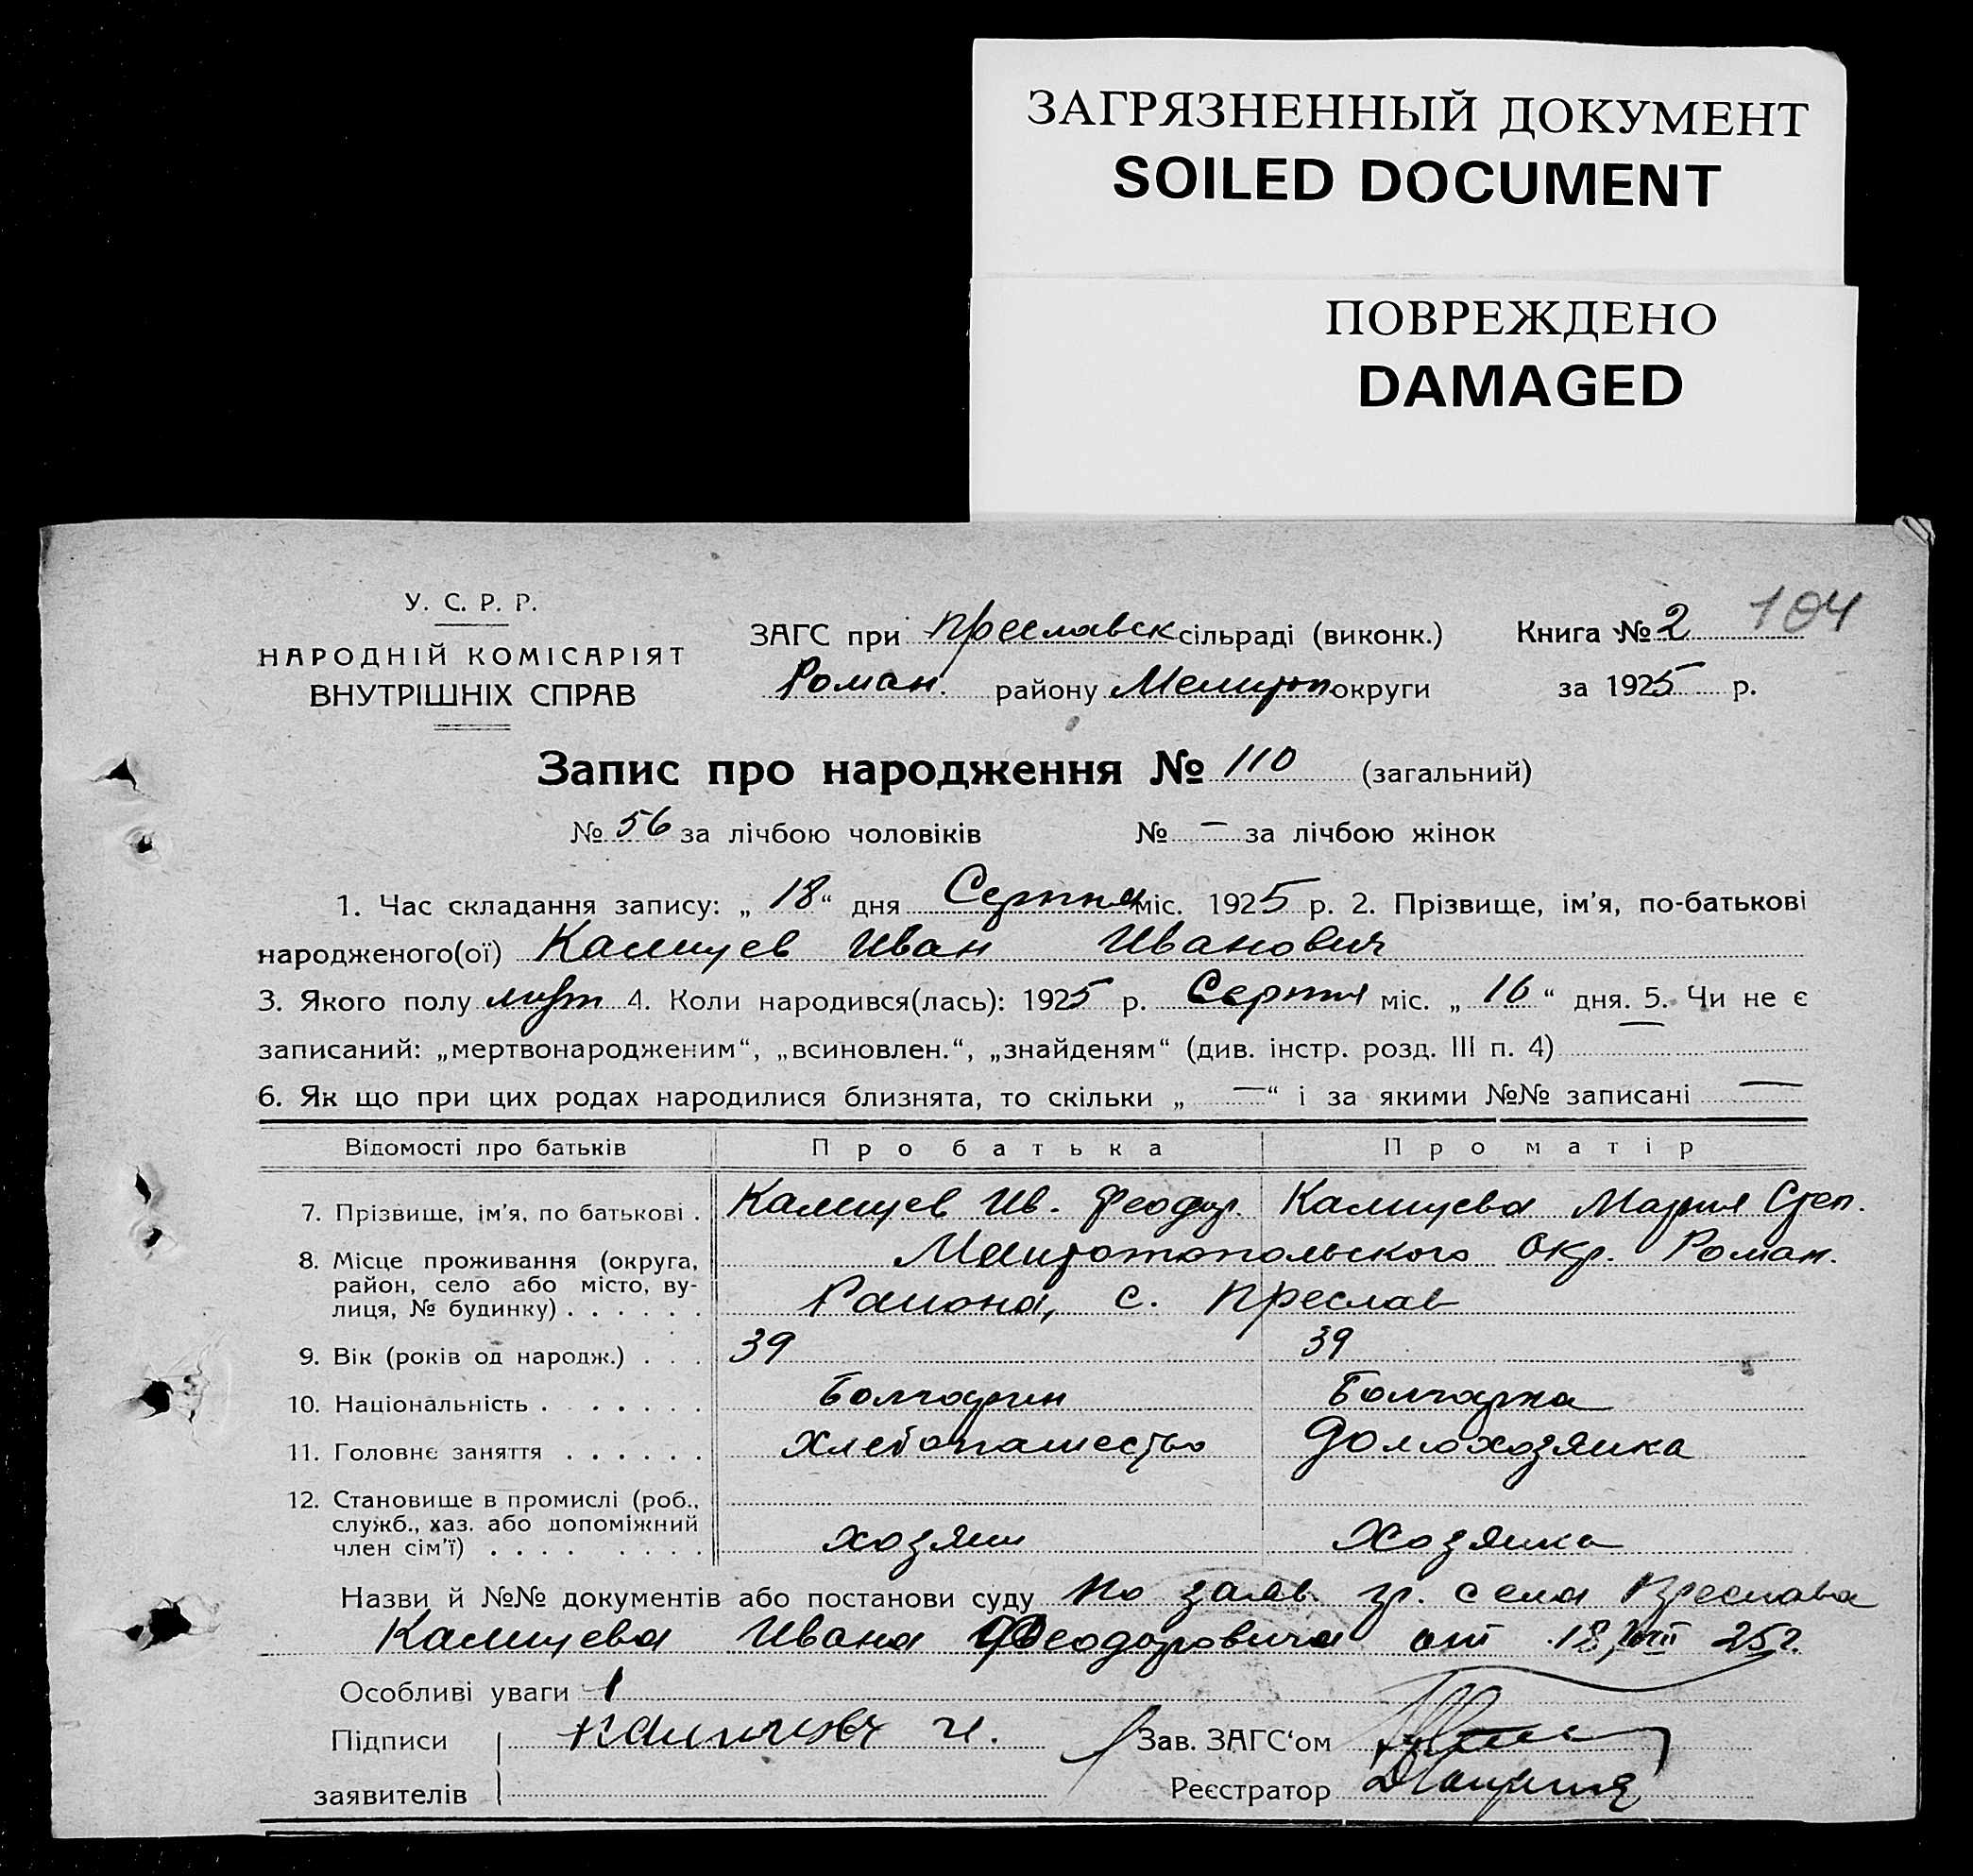 ЗАГРЯЗНЕННЫЙ ДОКУМЕНТ
SOILED DOCUMENT
ПОВРЕЖДЕНО
DAMAGED
У. С. Р. Р.
НАРОДНІЙ КОМІСАРІЯТ
ВНУТРІШНІХ СПРАВ
ЗАГС при Преславск сільраді (виконк.) Книга № 2 104
Роман. району Мелитоп округи за 1925 р.
Запис про народження № 110 (загальний)
№ 56 за лічбою чоловіків № — за лічбою жінок
1. Час складання запису: „ 18 “ дня Серпня міс. 1925 р. 2. Прізвище, ім'я, по-батькові
народженого(ої) Калицев Иван Иванович
3. Якого полу 4. Коли народився(лась): 1925 р. Серпня міс. „ 16 “ дня. 5. Чи не є
записаний: „мертвонародженим“, „всиновлен.“, „знайденям“ (див. інстр. розд. III п. 4) —
6. Як що при цих родах народилися близнята, то скільки „ — “ і за якими №№ записані —
Відомості про батьків Про батька Про матір
7. Прізвище, ім'я, по батькові . Калицев Ив. Феодор. Калицева Мария Степ.
8. Місце проживання (округа, Окр. Роман.
район, село або місто, ву-
лиця, № будинку) . . . . . . Района, с. Преслав
9. Вік (років од народж.) . . . 39 39
10. Національність . . . . . . . Болгарин Болгарка
11. Головнє заняття . . . . . . Хлебопашество Домохозяйка
12. Становище в промислі (роб.,
служб., хаз. або допоміжний
член сім'ї) . . . . . . . . хозяин Хозяйка
Назви й №№ документів або постанови суду по заяв. гр. села Преслава
Калицева Ивана Феодоровича от 18/VIII 25 г.
Особливі уваги
Підписи И. Зав. ЗАГС‘ом
заявителів Реєстратор